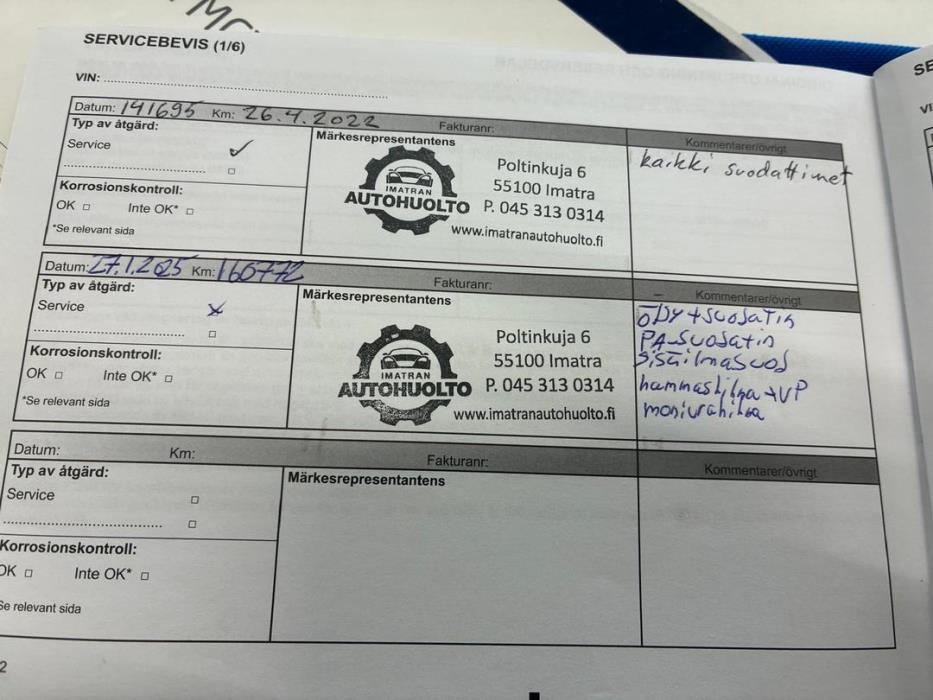 SERVICEBEVIS (1/6)
VIN:
Datum: 141695 Km: 26.4.2022 Fakturanr:
Typ av åtgärd:
Service
Korrosionskontroll:
OK Inte OK*
*Se relevant sida
Märkesrepresentantens
IMATRAN
AUTOHUOLTO
Poltinkuja 6
55100 Imatra
P. 045 313 0314
www.imatranautohuolto.fi
Kommentarer/övrigt
kaikki suodattimet
Datum: 27.1.2025 Km: 160772 Fakturanr:
Typ av åtgärd:
Service
Korrosionskontroll:
OK Inte OK*
*Se relevant sida
Märkesrepresentantens
IMATRAN
AUTOHUOLTO
Poltinkuja 6
55100 Imatra
P. 045 313 0314
www.imatranautohuolto.fi
Kommentarer/övrigt
ÖLJY + SUODATIN
PA-SUODATIN
SISÄILMASUOD
hammashihna + VP
moniurahihna
Datum: Km: Fakturanr:
Typ av åtgärd:
Service
Korrosionskontroll:
OK Inte OK*
Se relevant sida
Märkesrepresentantens
Kommentarer/övrigt
2
SE